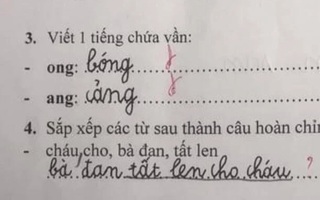 3. Viết 1 tiếng chứa vần:
- ong: bóng
- ang: cảng
4. Sắp xếp các từ sau thành câu hoàn chỉn
- cháu,cho, bà đan, tất len
bà đan tất len cho cháu...?